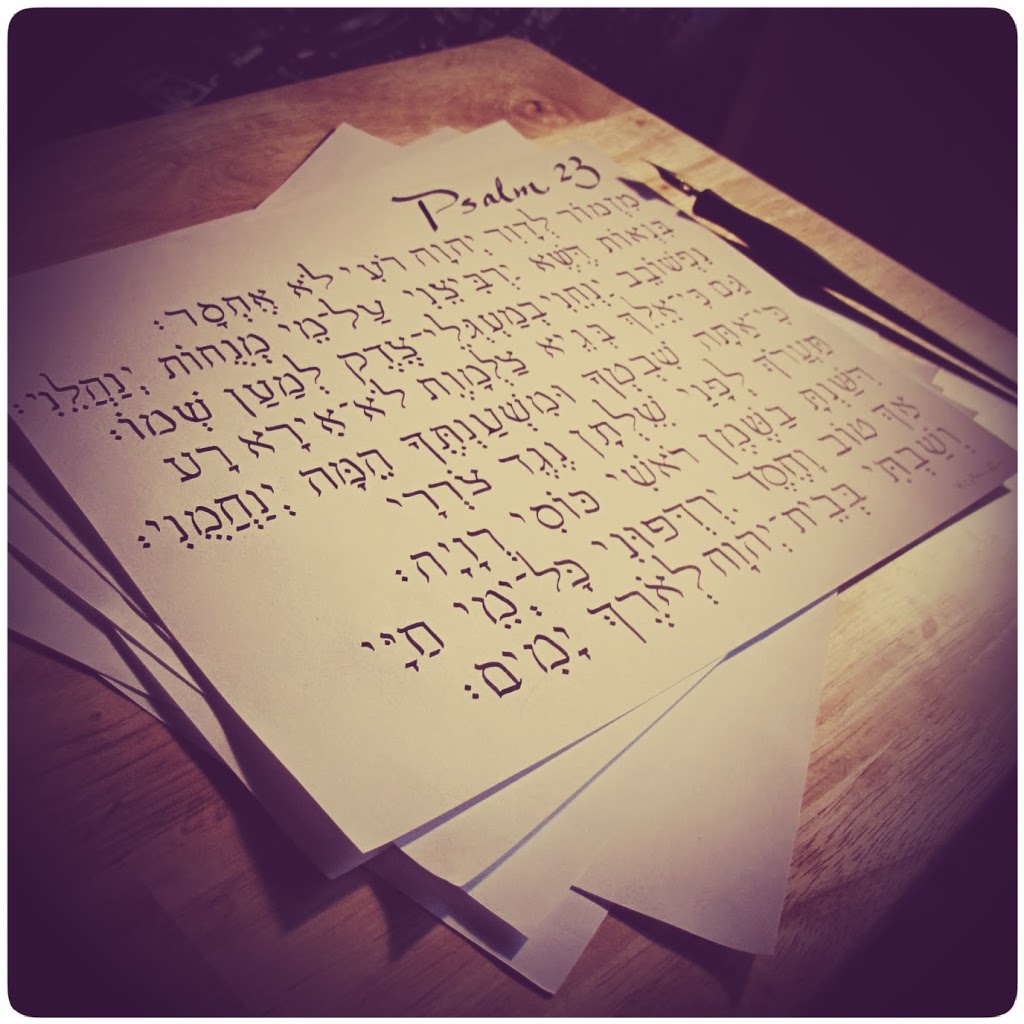 Psalm 23
מִזְמוֹר לְדָוִד יְהוָה רֹעִי לֹא אֶחְסָר:
בִּנְאוֹת דֶּשֶׁא יַרְבִּיצֵנִי עַל־מֵי מְנֻחוֹת יְנַהֲלֵנִי:
נַפְשׁוֹבֵב יַנְחֵנִי בְמַעְגְּלֵי־צֶדֶק לְמַעַן שְׁמוֹ:
גַּם כִּי־אֵלֵךְ בְּגֵיא צַלְמָוֶת לֹא־אִירָא רָע
כִּי־אַתָּה שִׁבְטְךָ וּמִשְׁעַנְתֶּךָ הֵמָּה יְנַחֲמֻנִי:
תַּעֲרֹךְ לְפָנַי שֻׁלְחָן נֶגֶד צֹרְרָי
דִּשַּׁנְתָּ בַשֶּׁמֶן רֹאשִׁי כּוֹסִי רְוָיָה:
אַךְ טוֹב וָחֶסֶד יִרְדְּפוּנִי כָּל־יְמֵי חַיָּי
וְשַׁבְתִּי בְּבֵית־יְהוָה לְאֹרֶךְ יָמִים: